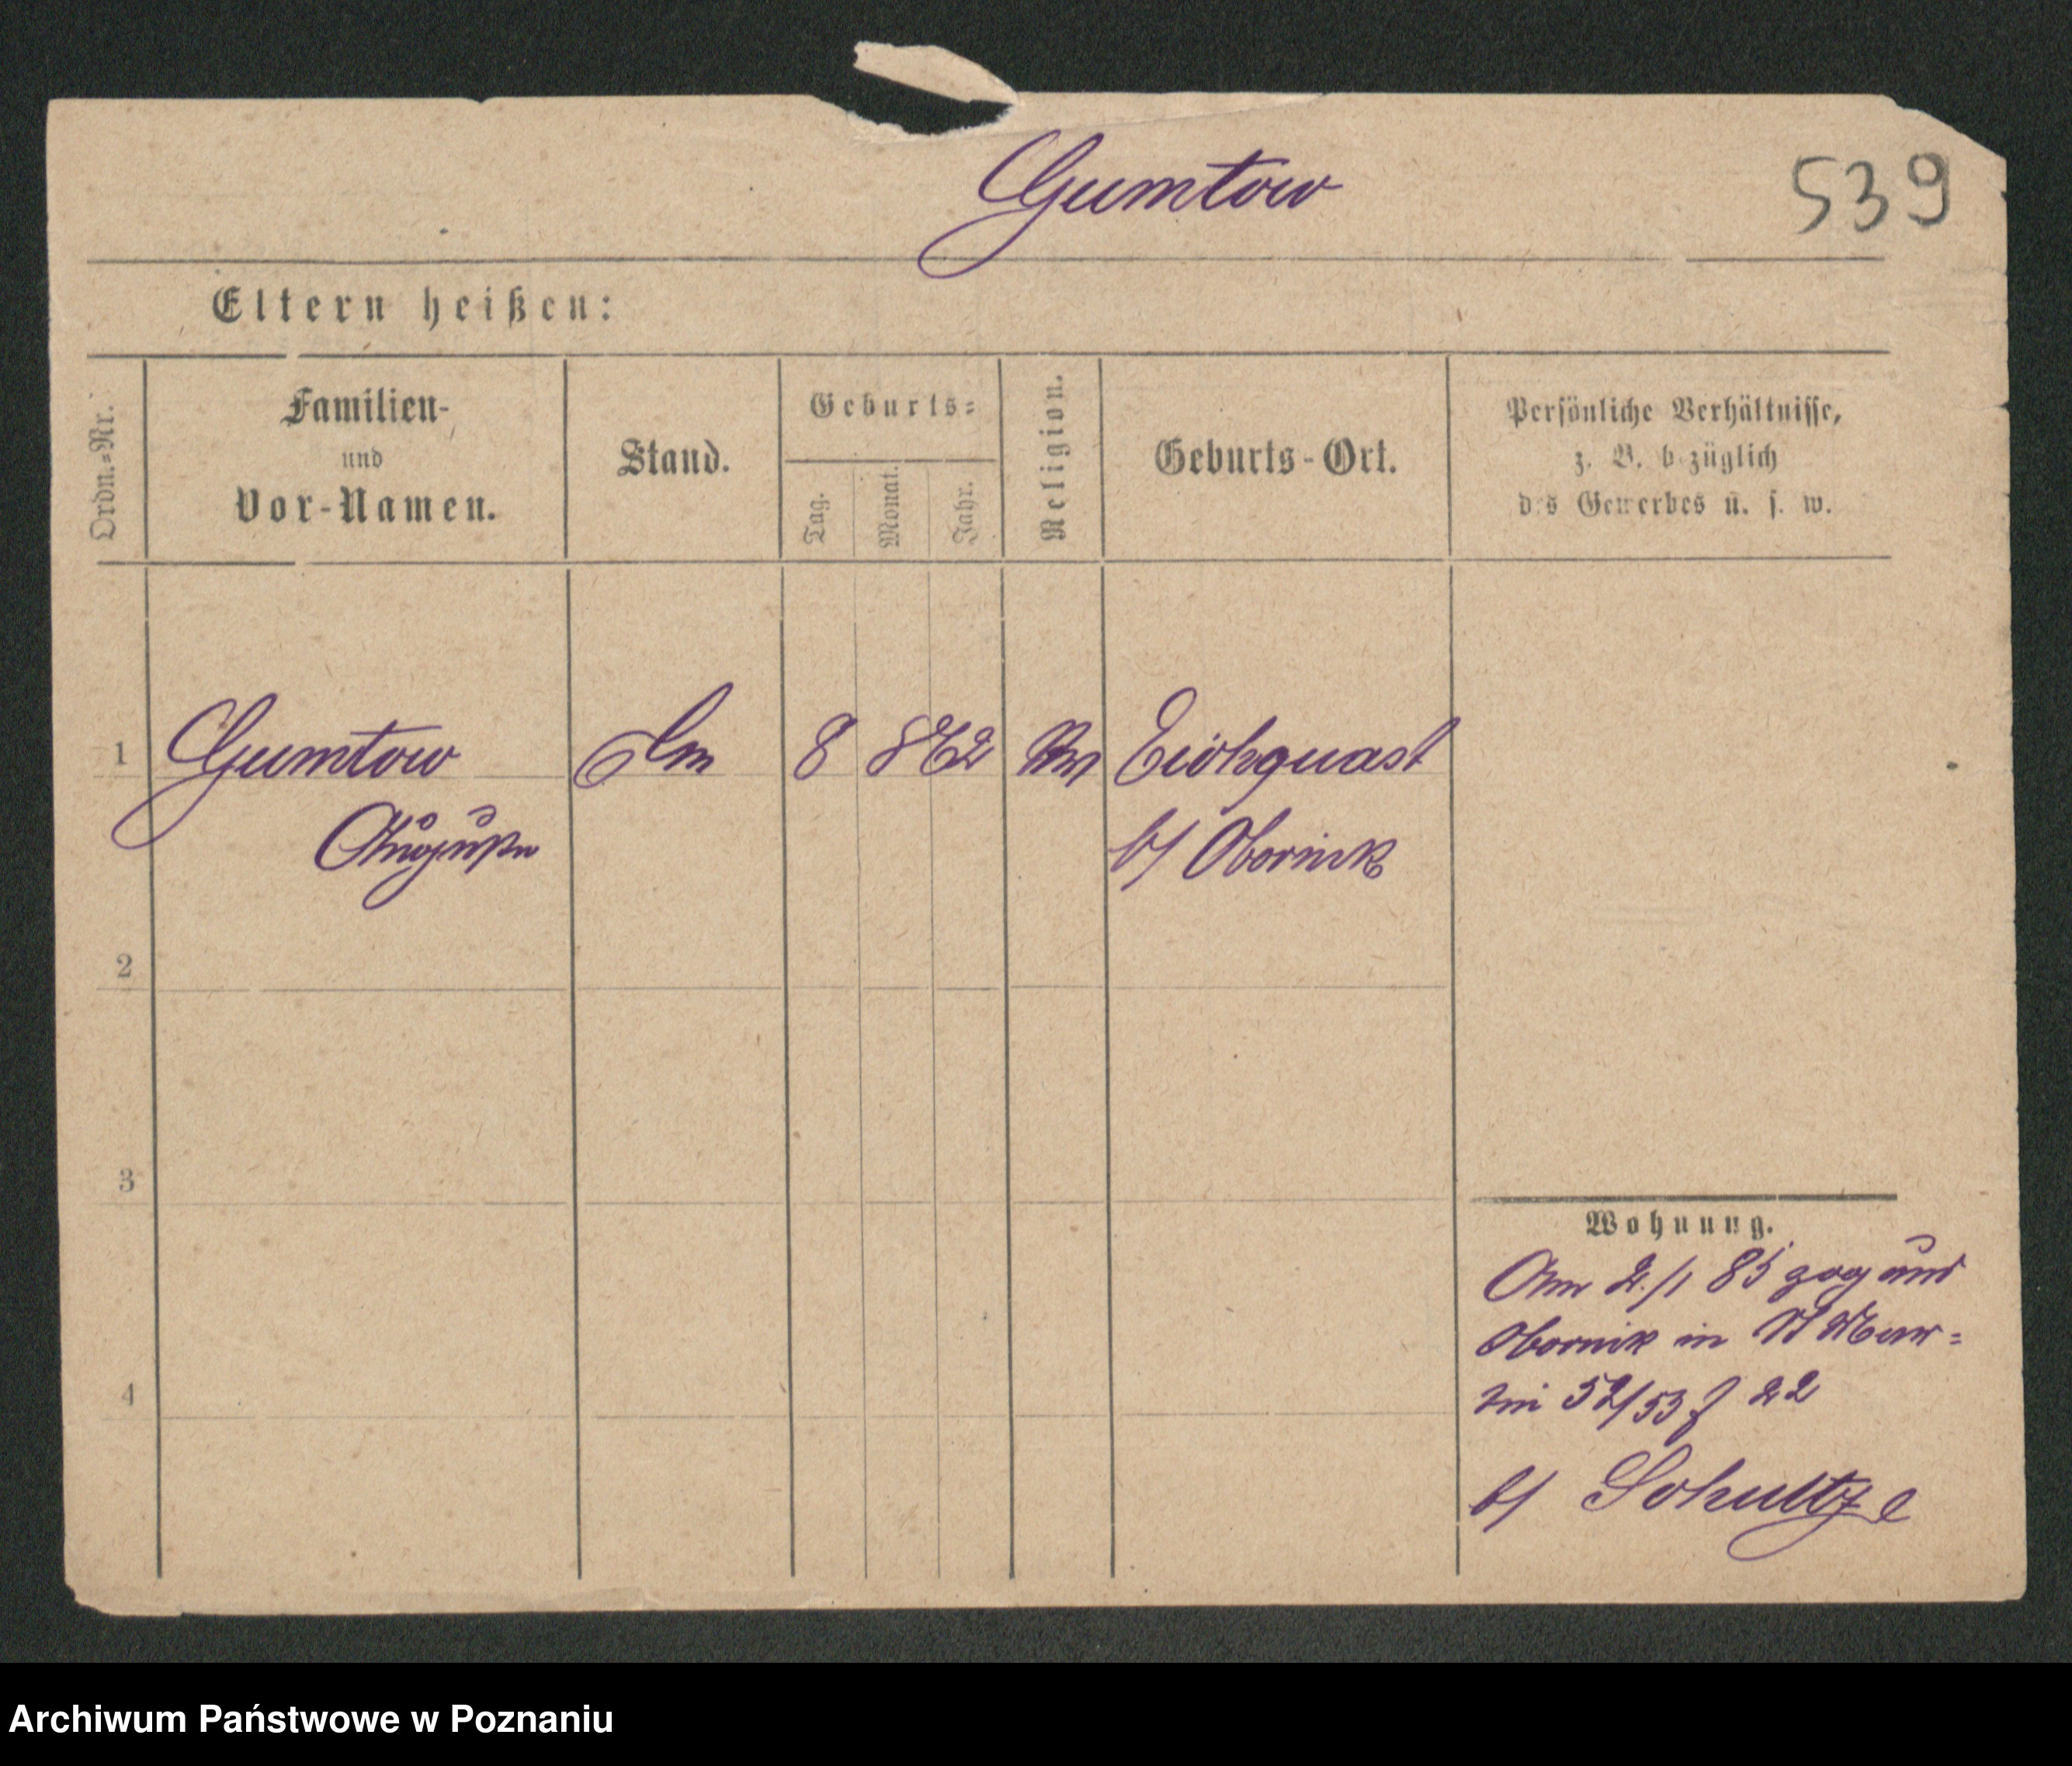 Gumtow
539
Eltern heißen:
Ordn.-Nr.
Familien-
und
Vor-Namen.
Stand.
Geburts-
Tag.
Monat.
Jahr.
Religion.
Geburts-Ort.
Persönliche Verhältnisse,
z. B. bezüglich
des Gewerbes u. s. w.
1 Gumtow 8 8 62 Eichquast
b/ Obornik
2
3
4
Wohnung.
Am 2./1 85 zog aus
Obornik in St Mar-
tin 52/53 f 22
b/ Schultze
Archiwum Państwowe w Poznaniu